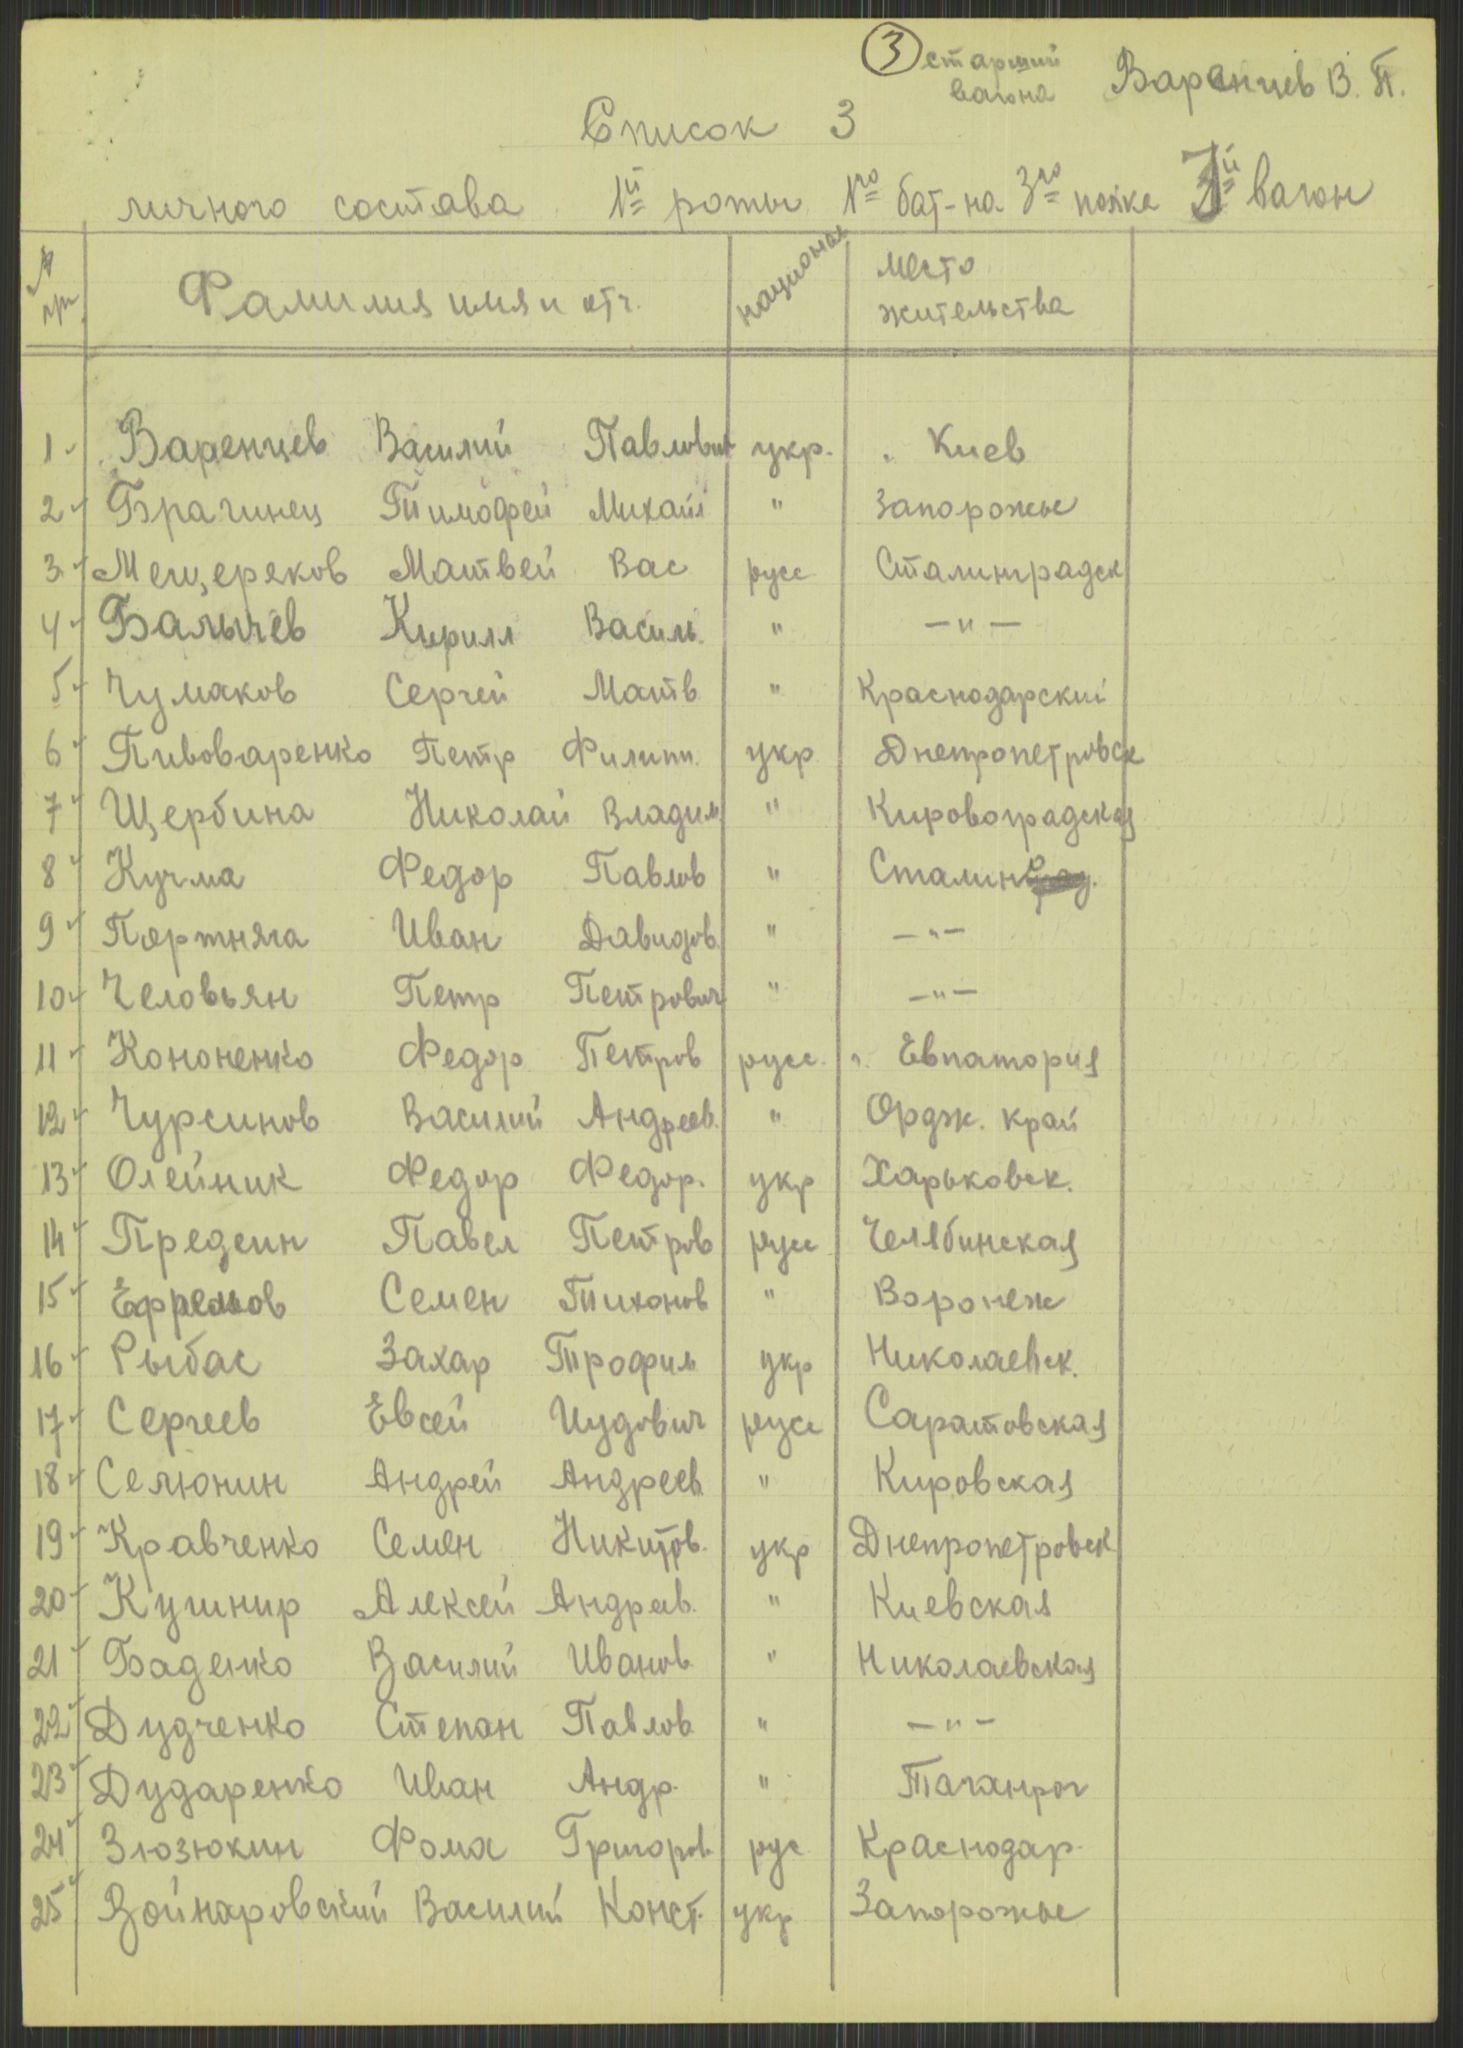 ③ старший вагона Варенцев В. П.
Список 3
личного состава 1й роты 1го бат-на 3го полка 3й вагон
№ пп Фамилия имя и отч. национал место жительства
1 Варенцев Василий Павлович укр. Киев
2 Брагинец Тимофей Михайл " Запорожье
3 Мещеряков Матвей Вас русс Сталинградск
4 Балычев Кирилл Василь. " —"—
5 Чумаков Сергей Матв " Краснодарский
6 Пивоваренко Петр Филипп. укр Днепропетровск
7 Щербина Николай Владим. " Кировоградская
8 Кучма Федор Павлов " Сталин
9 Портняга Иван Давидов " —"—
10 Человьян Петр Петрович " —"—
11 Кононенко Федор Петров русс. Евпатория
12 Чурсинов Василий Андреев. " Ордж. край
13 Олейник Федор Федор. укр Харьковск.
14 Предеин Павел Петров русс Челябинская
15 Ефремов Семен Тихонов " Воронеж
16 Рыбас Захар Трофим укр Николаевск.
17 Сергеев Евсей Иудович русс Саратовская
18 Селюнин Андрей Андреев " Кировская
19 Кравченко Семен Никитов. укр Днепропетровск
20 Кушнир Алексей Андреев. " Киевская
21 Баденко Василий Иванов " Николаевская
22 Дудченко Степан Павлов " —"—
23 Дударенко Иван Андр. " Таганрог
24 Зюзюкин Фома Григоров. рус. Краснодар.
25 Войнаровский Василий Конст. укр Запорожье